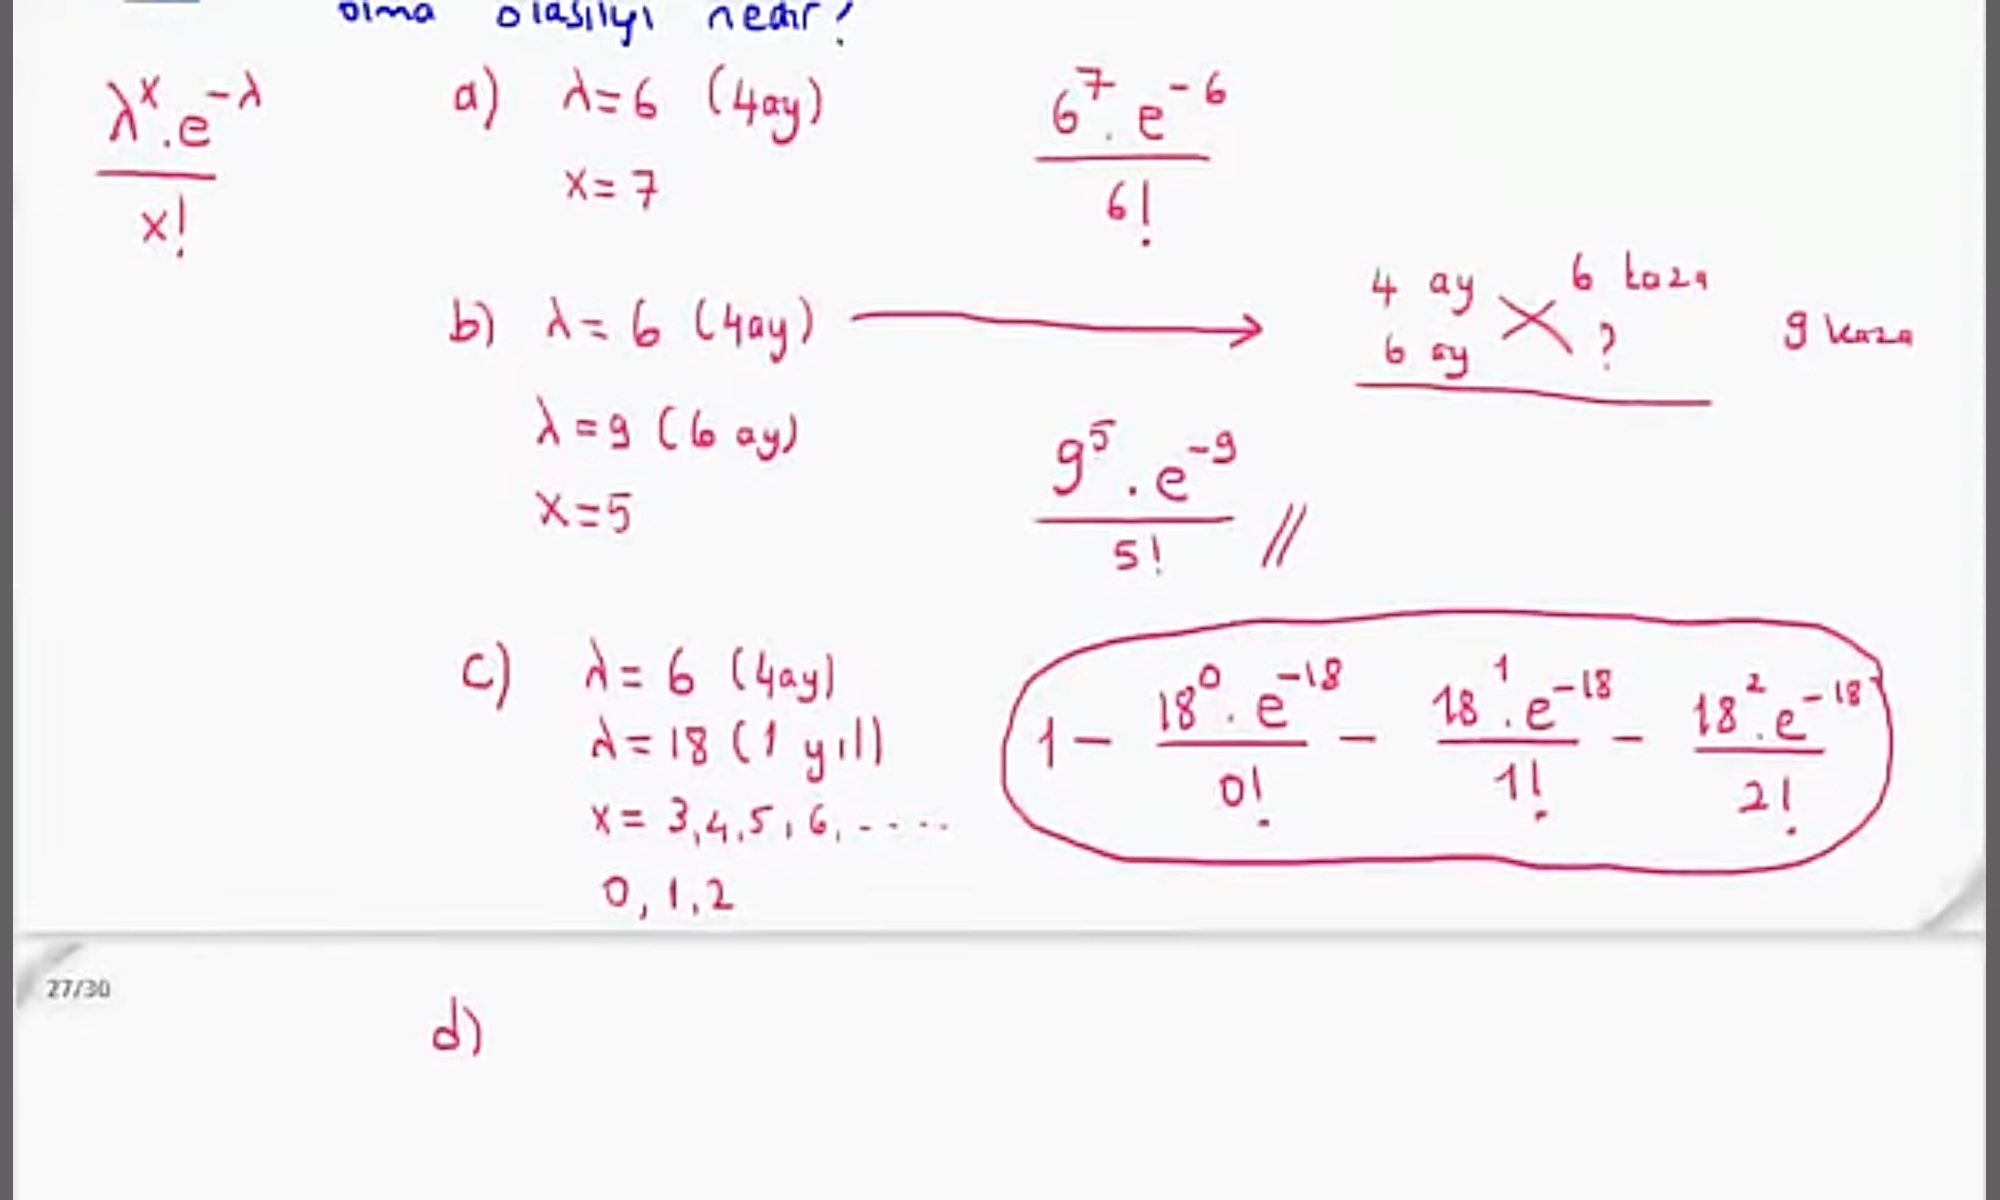 olma olasılığı nedir?
λ^x . e^-λ / x!
a) λ = 6 (4ay)
x = 7
6^7 . e^-6 / 6!
b) λ = 6 (4ay)
4 ay 6 kaza
6 ay ?
9 kaza
λ = 9 (6 ay)
x = 5
9^5 . e^-9 / 5! //
c) λ = 6 (4ay)
λ = 18 (1 yıl)
x = 3,4,5,6,....
0,1,2
1 - 18^0 . e^-18 / 0! - 18^1 . e^-18 / 1! - 18^2 . e^-18 / 2!
27/30
d)